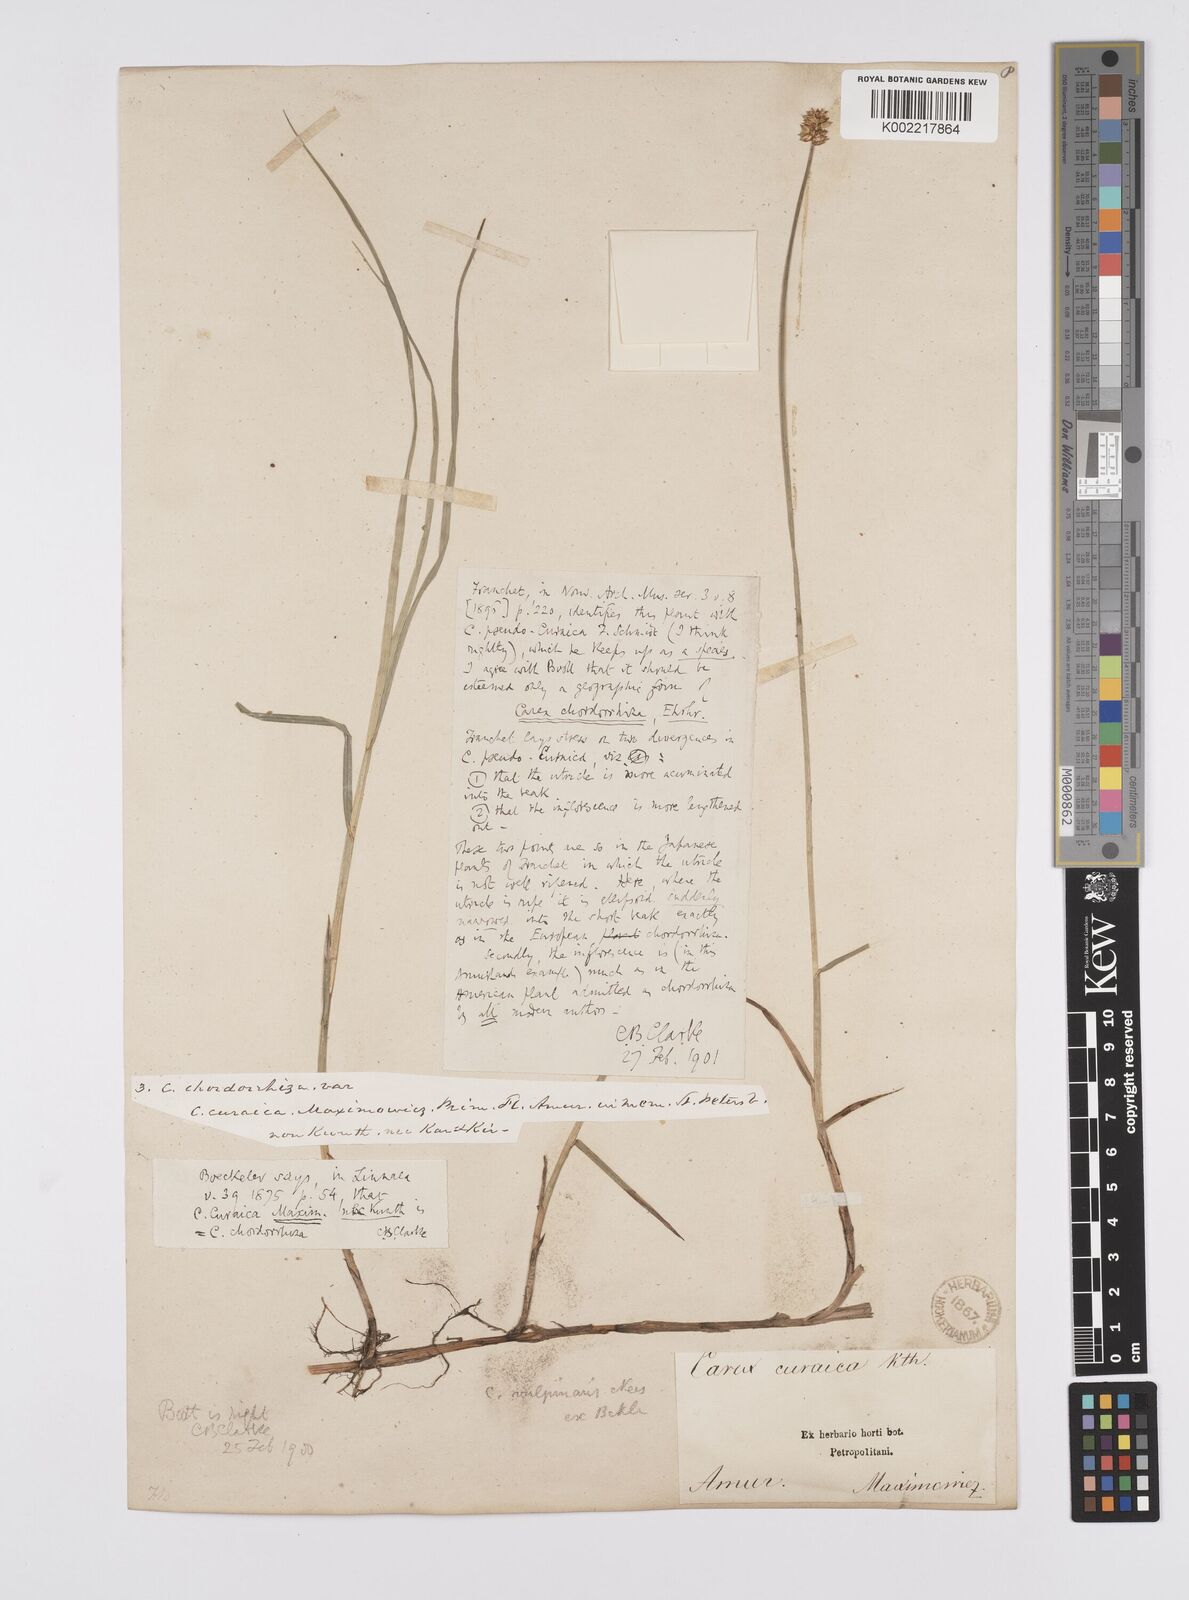 ROYAL BOTANIC GARDENS KEW
K002217864
Franchet, in Nouv. Arch. Mus. ser. 3 v. 8
[1895] p. 220, identifies this plant with
C. pseudo-Curaica F. Schmidt (I think
rightly), which he keeps up as a species.
I agree with Boott that it should be
esteemed only a geographic form of
Carex chordorrhiza, Ehrhr.
Franchet lays stress on two divergences in
C. pseudo-Curaica, viz:
① that the utricle is more acuminated
into the beak
② that the inflorescence is more lengthened
out -
These two points are so in the Japanese
plants of Franchet in which the utricle
is not well ripened. Here, where the
utricle is ripe it is ellipsoid, suddenly
narrowed into the short beak exactly
as in the European plant chordorrhiza.
Secondly, the inflorescence is (in this
Amurland example) much as in the
American plant admitted as chordorrhiza
by all modern authors -
C.B. Clarke
27 Feb. 1901
3. C. chordorrhiza. var
C. curaica. Maximowicz. Prim. Fl. Amur. in mem. St. Petersb.
non Kunth. nec Kar & Kir -
Boeckeler says, in Linnaea
v. 39 1875 p. 54, that
C. Curaica Maxim. nec Kunth is
= C. chordorrhiza C.B. Clarke
C. vulpinaris Nees
ex Bcklr
Boott is right
C.B. Clarke
25 Feb 1900
HERBARIUM
HOOKERIANUM
1867.
Carex curaica Kth.
Ex herbario horti bot.
Petropolitani.
Amur. Maximowicz.
inches
centimeters
Density
Don Williams
M000862
Kew
Royal Botanic Gardens
0 1 2 3 4 5 6 7 8 9 10
cm
copyright reserved